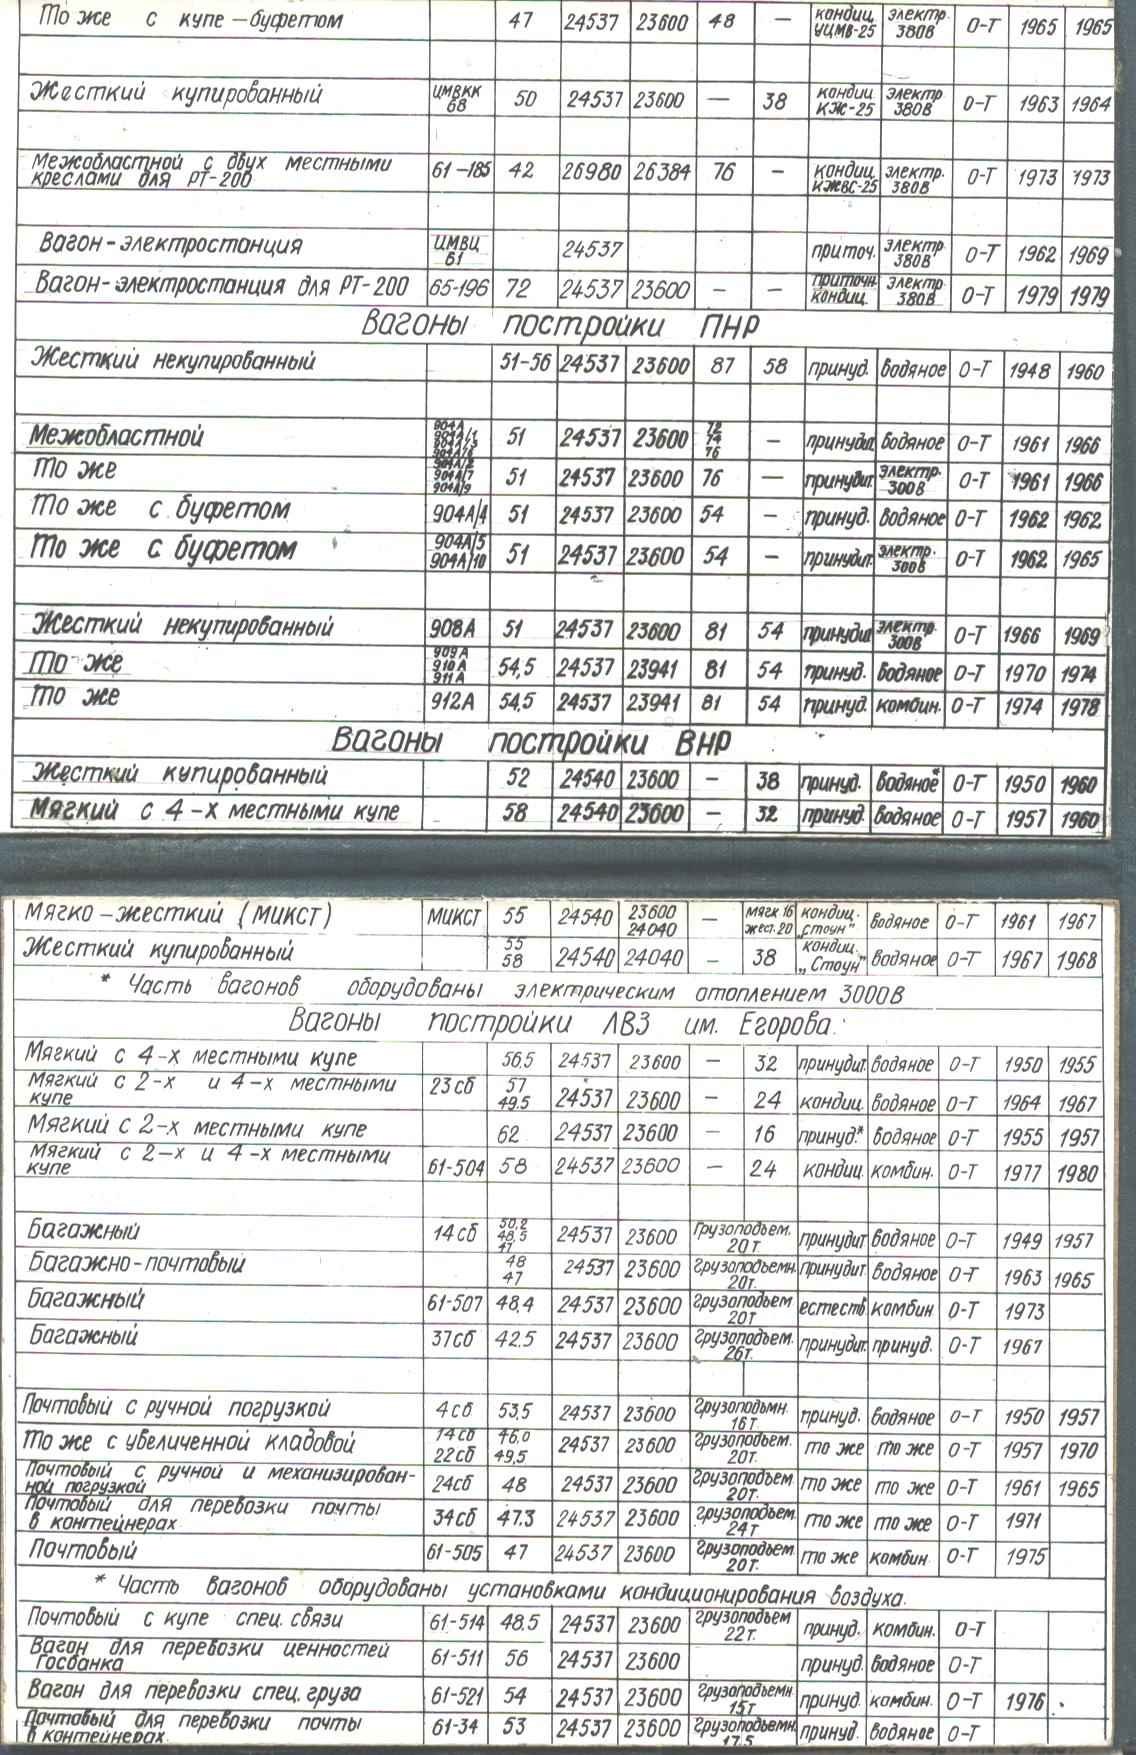 То же с купе-буфетом 47 24537 23600 48 — кондиц. УЦМВ-25 электр. 380В О-Т 1965 1965
Жесткий купированный ЦМВКК 68 50 24537 23600 — 38 кондиц КЖ-25 электр 380В О-Т 1963 1964
Межобластной с двух местными креслами для РТ-200 61-185 42 26980 26384 76 — кондиц. КЖВС-25 электр. 380В О-Т 1973 1973
Вагон-электростанция ЦМВЦ 61 24537 приточ. электр. 380В О-Т 1962 1969
Вагон-электростанция для РТ-200 65-196 72 24537 23600 — — приточн. кондиц. электр. 380В О-Т 1979 1979
Вагоны постройки ПНР
Жесткий некупированный 51-56 24537 23600 87 58 принуд. водяное О-Т 1948 1960
Межобластной 904А 51 24537 23600 72 74 76 — принудит водяное О-Т 1961 1966
То же 904А/2 904А/7 904А/9 51 24537 23600 76 — принудит. электр. 300В О-Т 1961 1966
То же с буфетом 904А/4 51 24537 23600 54 — принуд. водяное О-Т 1962 1962
То же с буфетом 904А/5 904А/10 51 24537 23600 54 — принудит. электр. 300В О-Т 1962 1965
Жесткий некупированный 908А 51 24537 23600 81 54 принудит электр. 300В О-Т 1966 1969
То же 909А 910А 911А 54,5 24537 23941 81 54 принуд. водяное О-Т 1970 1974
То же 912А 54,5 24537 23941 81 54 принуд. комбин. О-Т 1974 1978
Вагоны постройки ВНР
Жесткий купированный 52 24540 23600 — 38 принуд. водяное* О-Т 1950 1960
Мягкий с 4-х местными купе 58 24540 23600 — 32 принуд. водяное О-Т 1957 1960
Мягко-жесткий (МИКСТ) МИКСТ 55 24540 23600 24040 — мягк 16 жест. 20 кондиц. „Стоун" водяное О-Т 1961 1967
Жесткий купированный 55 58 24540 24040 — 38 кондиц. „Стоун" водяное О-Т 1967 1968
* Часть вагонов оборудованы электрическим отоплением 3000В
Вагоны постройки ЛВЗ им. Егорова.
Мягкий с 4-х местными купе 56,5 24537 23600 — 32 принудит. водяное О-Т 1950 1955
Мягкий с 2-х и 4-х местными купе 23сб 57 49.5 24537 23600 — 24 кондиц. водяное О-Т 1964 1967
Мягкий с 2-х местными купе 62 24537 23600 — 16 принуд.* водяное О-Т 1955 1957
Мягкий с 2-х и 4-х местными купе 61-504 58 24537 23600 — 24 кондиц. комбин. О-Т 1977 1980
Багажный 14сб 50,2 48,5 47 24537 23600 Грузоподъем. 20т принудит водяное О-Т 1949 1957
Багажно-почтовый 48 47 24537 23600 Грузоподъемн. 20т. принудит. водяное О-Т 1963 1965
Багажный 61-507 48,4 24537 23600 Грузоподъем 20т естеств комбин О-Т 1973
Багажный 37сб 42.5 24537 23600 Грузоподъем. 26т. принудит. принуд. О-Т 1967
Почтовый с ручной погрузкой 4сб 53,5 24537 23600 Грузоподъмн. 16т. принуд. водяное О-Т 1950 1957
То же с увеличенной кладовой 14сб 22сб 46.0 49,5 24537 23600 Грузоподъем. 20т. то же то же О-Т 1957 1970
Почтовый с ручной и механизирован-ной погрузкой 24сб 48 24537 23600 Грузоподъем 20т. то же то же О-Т 1961 1965
Почтовый для перевозки почты в контейнерах 34сб 47.3 24537 23600 Грузоподъем. 24т то же то же О-Т 1971
Почтовый 61-505 47 24537 23600 Грузоподъем. 20т. то же комбин О-Т 1975
* Часть вагонов оборудованы установками кондиционирования воздуха.
Почтовый с купе спец. связи 61-514 48.5 24537 23600 грузоподъем 22т. принуд. комбин. О-Т
Вагон для перевозки ценностей госбанка 61-511 56 24537 23600 принуд. водяное О-Т
Вагон для перевозки спец. груза 61-521 54 24537 23600 Грузоподъемн 15т принуд. комбин. О-Т 1976
Почтовый для перевозки почты в контейнерах. 61-34 53 24537 23600 Грузоподъемн. 17.5 принуд. водяное О-Т